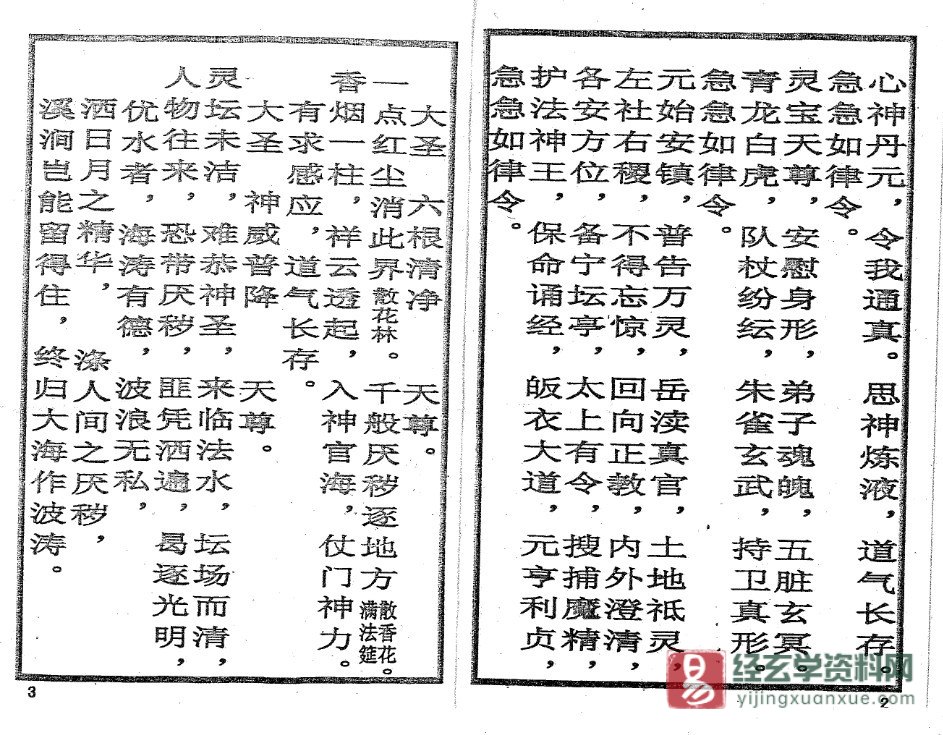 心神丹元，令我通真。思神炼液，道气长存。
急急如律令。
灵宝天尊，安慰身形，弟子魂魄，五脏玄冥。
青龙白虎，队杖纷纭，朱雀玄武，持卫真形。
急急如律令。
元始安镇，普告万灵，岳渎真官，土地祗灵，
左社右稷，不得忘惊，回向正教，内外澄清，
各安方位，备宁坛亭，太上有令，搜捕魔精，
护法神王，保命诵经，皈衣大道，元亨利贞，
急急如律令。
2
大圣 六根清净 天尊。
一点红尘消此界散花林。千般厌秽逐地方散香花满法筵。
香烟一柱，祥云透起，入神官海，仗门神力。
有求感应，道气长存。
大圣 神威普降 天尊。
灵坛未洁，难恭神圣，来临法水，坛场而清，
人物往来，恐带厌秽，匪凭洒遍，曷逐光明，
优水者，海涛有德，波浪无私，
洒日月之精华，涤人间之厌秽，
溪涧岂能留得住，终归大海作波涛。
3
易
经玄学资料网
yijingxuanxue.com